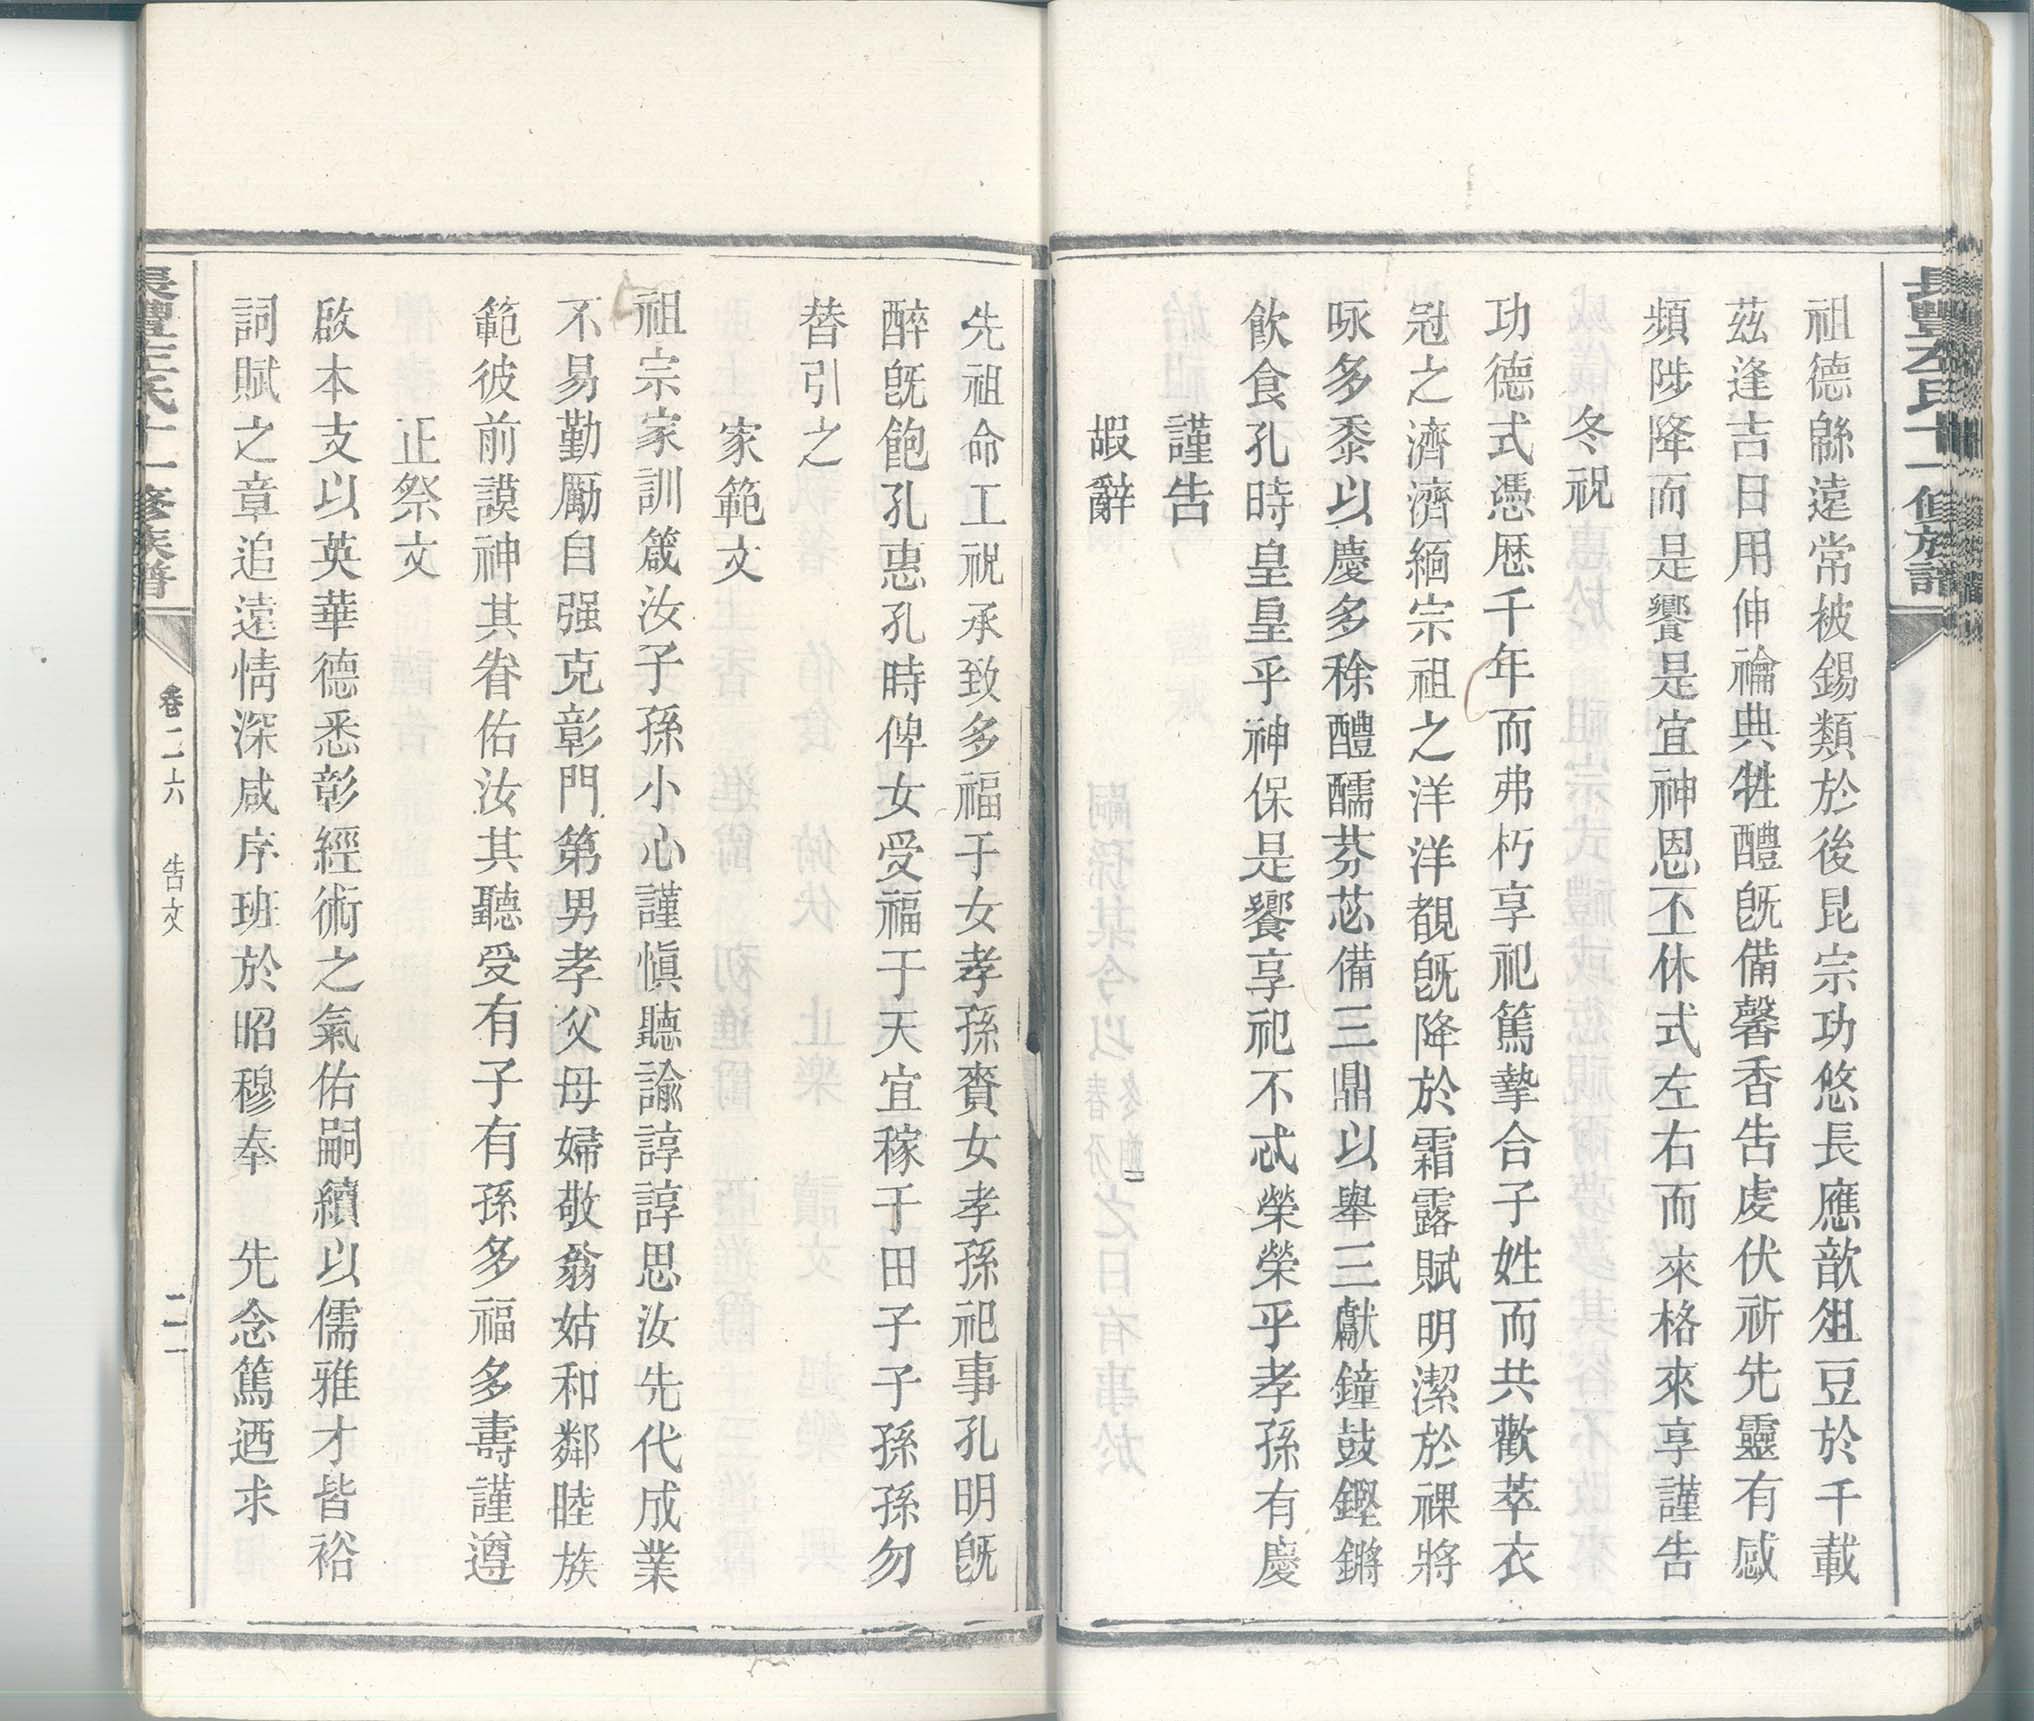 長豐左氏十一修族譜
祖德緜遠常被錫類於後昆宗功悠長應歆俎豆於千載
茲逢吉日用伸禴典牲醴旣備馨香告虔伏祈先靈有感
頻陟降而是饗是宜神恩丕休式左右而來格來享謹告
冬祝
功德式憑歷千年而弗朽享祀篤摯合子姓而共歡萃衣
冠之濟濟緬宗祖之洋洋覩旣降於霜露賦明潔於祼將
咏多黍以慶多稌醴醹芬苾備三鼎以舉三獻鐘鼓鏗鏘
飮食孔時皇皇乎神保是饗享祀不忒榮榮乎孝孫有慶
謹告
嘏辭
先祖命工祝承致多福于女孝孫賚女孝孫祀事孔明旣
醉旣飽孔惠孔時俾女受福于天宜稼于田子子孫孫勿
替引之
家範文
祖宗家訓箴汝子孫小心謹愼聽諭諄諄思汝先代成業
不易勤勵自强克彰門第男孝父母婦敬翁姑和鄰睦族
範彼前謨神其眷佑汝其聽受有子有孫多福多壽謹遵
正祭文
啟本支以英華德悉彰經術之氣佑嗣續以儒雅才皆裕
詞賦之章追遠情深咸序班於昭穆奉 先念篤迺求
卷二六 告文 二一